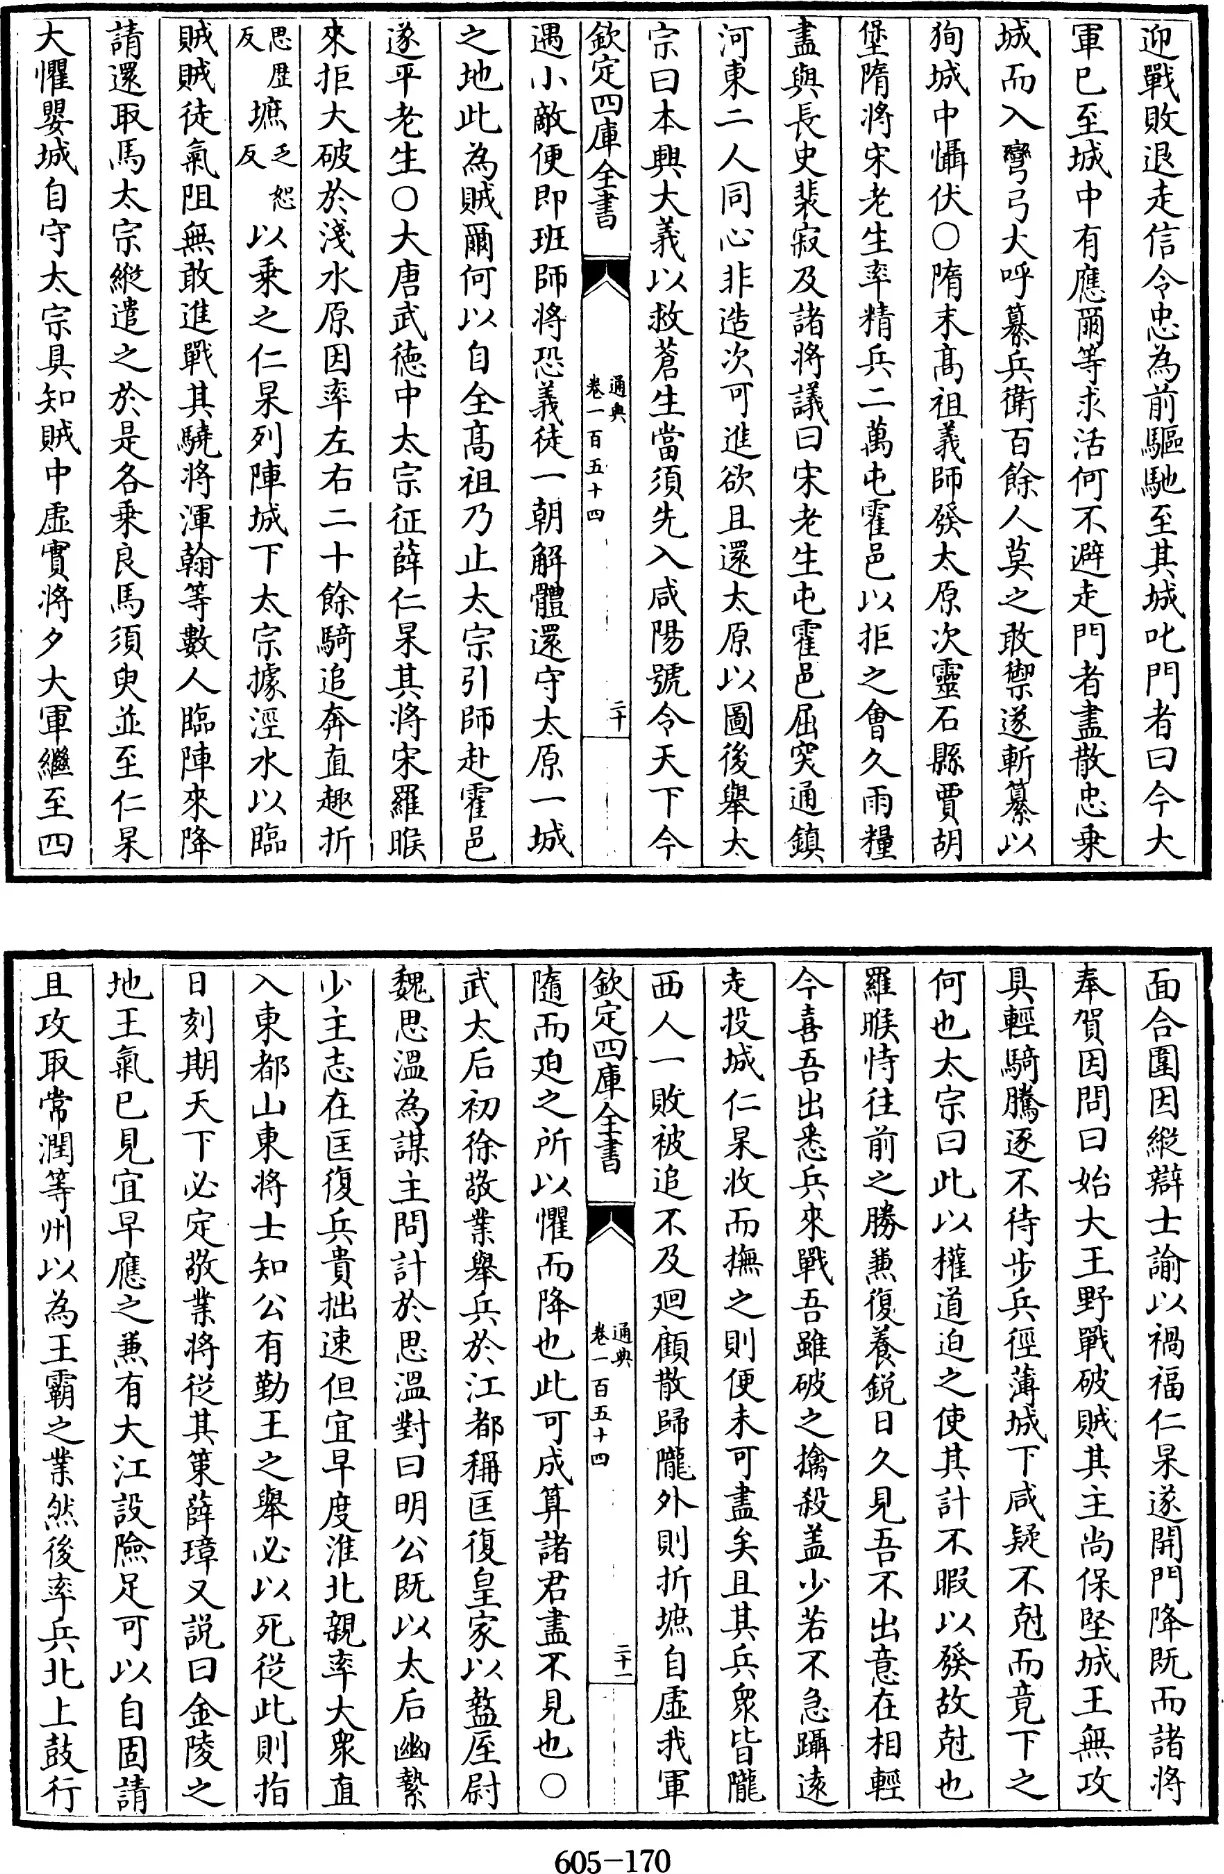 迎戰敗退走信令忠為前驅馳至其城叱門者曰今大
軍已至城中有應爾等求活何不避走門者盡散忠乗
城而入彎弓大呼纂兵衛百餘人莫之敢禦遂斬纂以
狥城中懾伏○隋末髙祖義師發太原次靈石縣賈胡
堡隋將宋老生率精兵二萬屯霍邑以拒之會久雨糧
盡與長史裴寂及諸將議曰宋老生屯霍邑屈突通鎮
河東二人同心非造次可進欲且還太原以圖後舉太
宗曰本興大義以救蒼生當須先入咸陽號令天下今
欽定四庫全書
通典
卷一百五十四
二十
遇小敵便即班師將恐義徒一朝解體還守太原一城
之地此為賊爾何以自全髙祖乃止太宗引師赴霍邑
遂平老生○大唐武徳中太宗征薛仁杲其將宋羅㬋
來拒大破於淺水原因率左右二十餘騎追奔直趣折
思歴反墌乏恕反以乗之仁杲列陣城下太宗據涇水以臨
賊賊徒氣阻無敢進戰其驍將渾翰等數人臨陣來降
請還取馬太宗縱遣之於是各乗良馬須臾並至仁杲
大懼嬰城自守太宗具知賊中虛實將夕大軍繼至四
面合圍因縱辯士諭以禍福仁杲遂開門降既而諸將
奉賀因問曰始大王野戰破賊其主尚保堅城王無攻
具輕騎騰逐不待步兵徑薄城下咸疑不尅而竟下之
何也太宗曰此以權道迫之使其計不暇以發故尅也
羅㬋恃往前之勝兼復養銳日久見吾不出意在相輕
今喜吾出悉兵來戰吾雖破之擒殺盖少若不急躡逺
走投城仁杲收而撫之則便未可盡矣且其兵衆皆隴
西人一敗被追不及廻顧散歸隴外則折墌自虛我軍
欽定四庫全書
通典
卷一百五十四
二十一
隨而廹之所以懼而降也此可成算諸君盡不見也○
武太后初徐敬業舉兵於江都稱匡復皇家以盩厔尉
魏思溫為謀主問計於思溫對曰明公既以太后幽縶
少主志在匡復兵貴拙速但宜早度淮北親率大衆直
入東都山東將士知公有勤王之舉必以死從此則指
日刻期天下必定敬業將從其策薛璋又說曰金陵之
地王氣已見宜早應之兼有大江設險足可以自固請
且攻取常潤等州以為王霸之業然後率兵北上鼓行
605-170